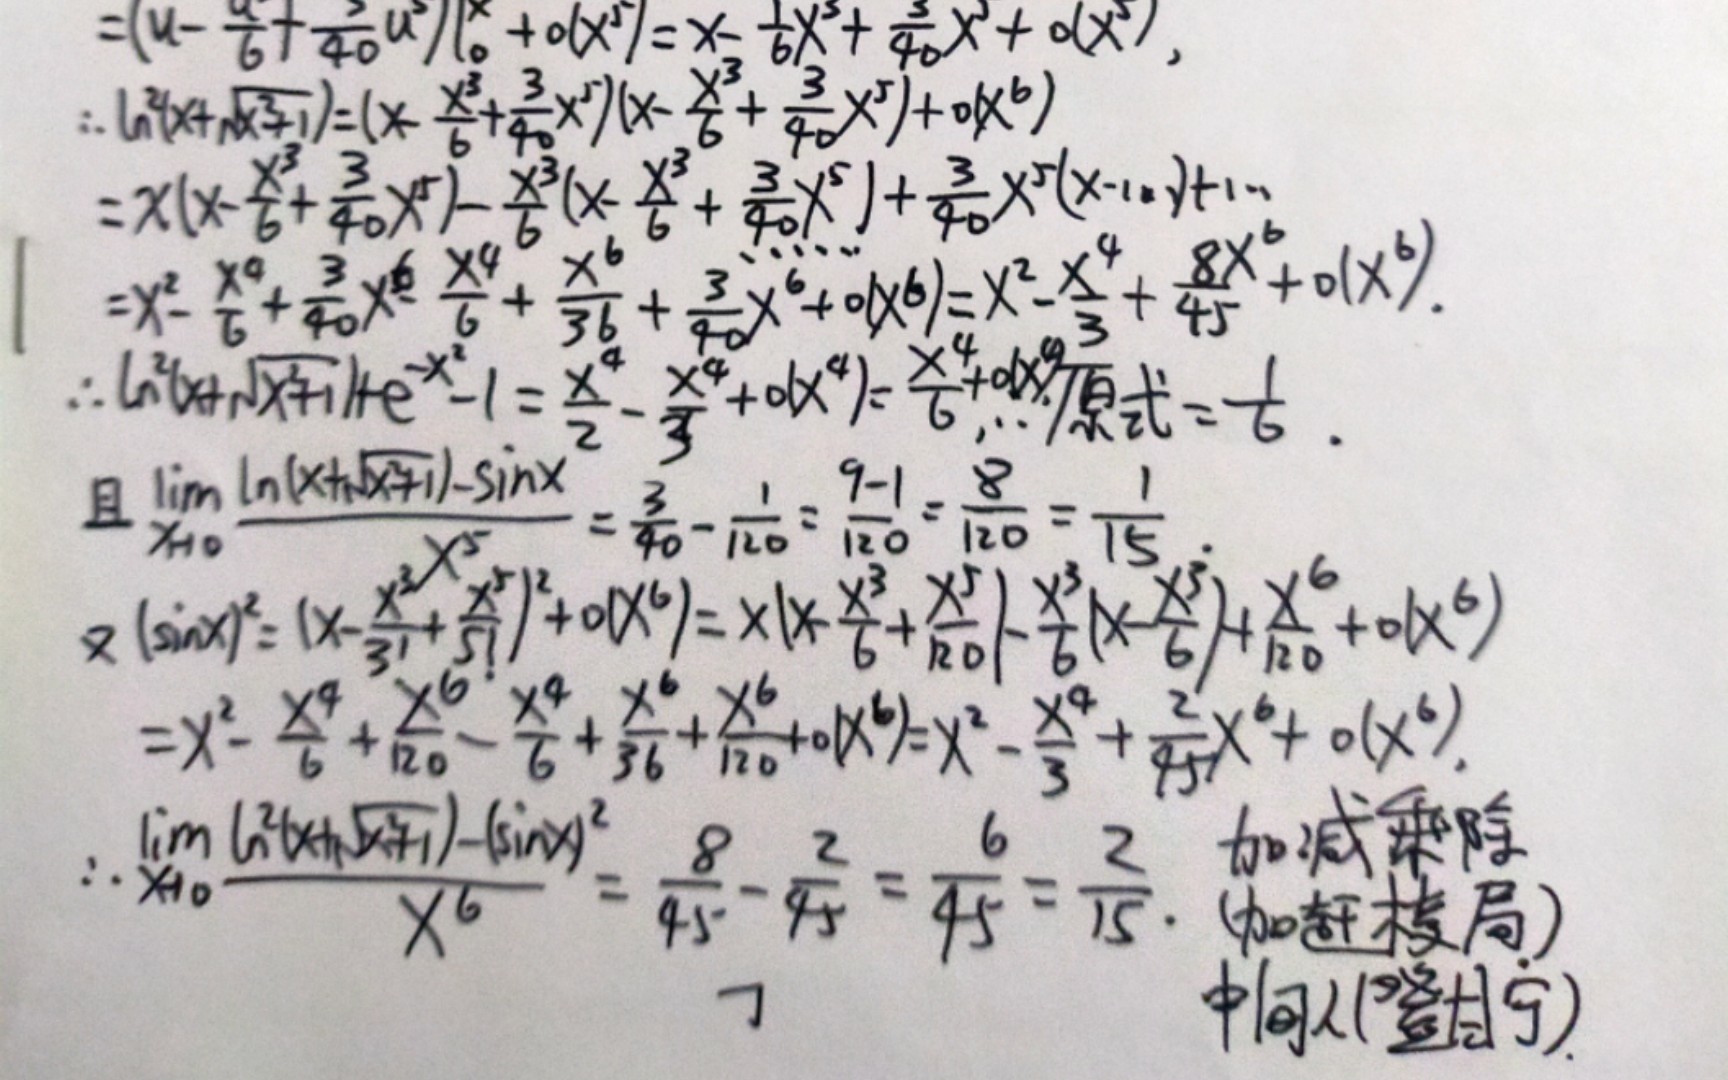 =(u-u³/6+3/40u⁵)|₀ˣ+o(x⁵)=x-1/6x³+3/40x⁵+o(x⁵),
∴ln²(x+√(x²+1))=(x-x³/6+3/40x⁵)(x-x³/6+3/40x⁵)+o(x⁶)
=x(x-x³/6+3/40x⁵)-x³/6(x-x³/6+3/40x⁵)+3/40x⁵(x-...)+...
=x²-x⁴/6+3/40x⁶-x⁴/6+x⁶/36+3/40x⁶+o(x⁶)=x²-x⁴/3+8x⁶/45+o(x⁶).
∴ln²(x+√(x²+1))+e^(-x²)-1=x⁴/2-x⁴/3+o(x⁴)=x⁴/6+o(x⁴),∴原式=1/6.
且 lim x→0 (ln(x+√(x²+1))-sinx)/x⁵=3/40-1/120=(9-1)/120=8/120=1/15.
又(sinx)²=(x-x³/3!+x⁵/5!)²+o(x⁶)=x(x-x³/6+x⁵/120)-x³/6(x-x³/6)+x⁶/120+o(x⁶)
=x²-x⁴/6+x⁶/120-x⁴/6+x⁶/36+x⁶/120+o(x⁶)=x²-x⁴/3+2/45x⁶+o(x⁶).
∴lim x→0 (ln²(x+√(x²+1))-(sinx)²)/x⁶=8/45-2/45=6/45=2/15.
加减乘除
(加赶楼局)
中间人